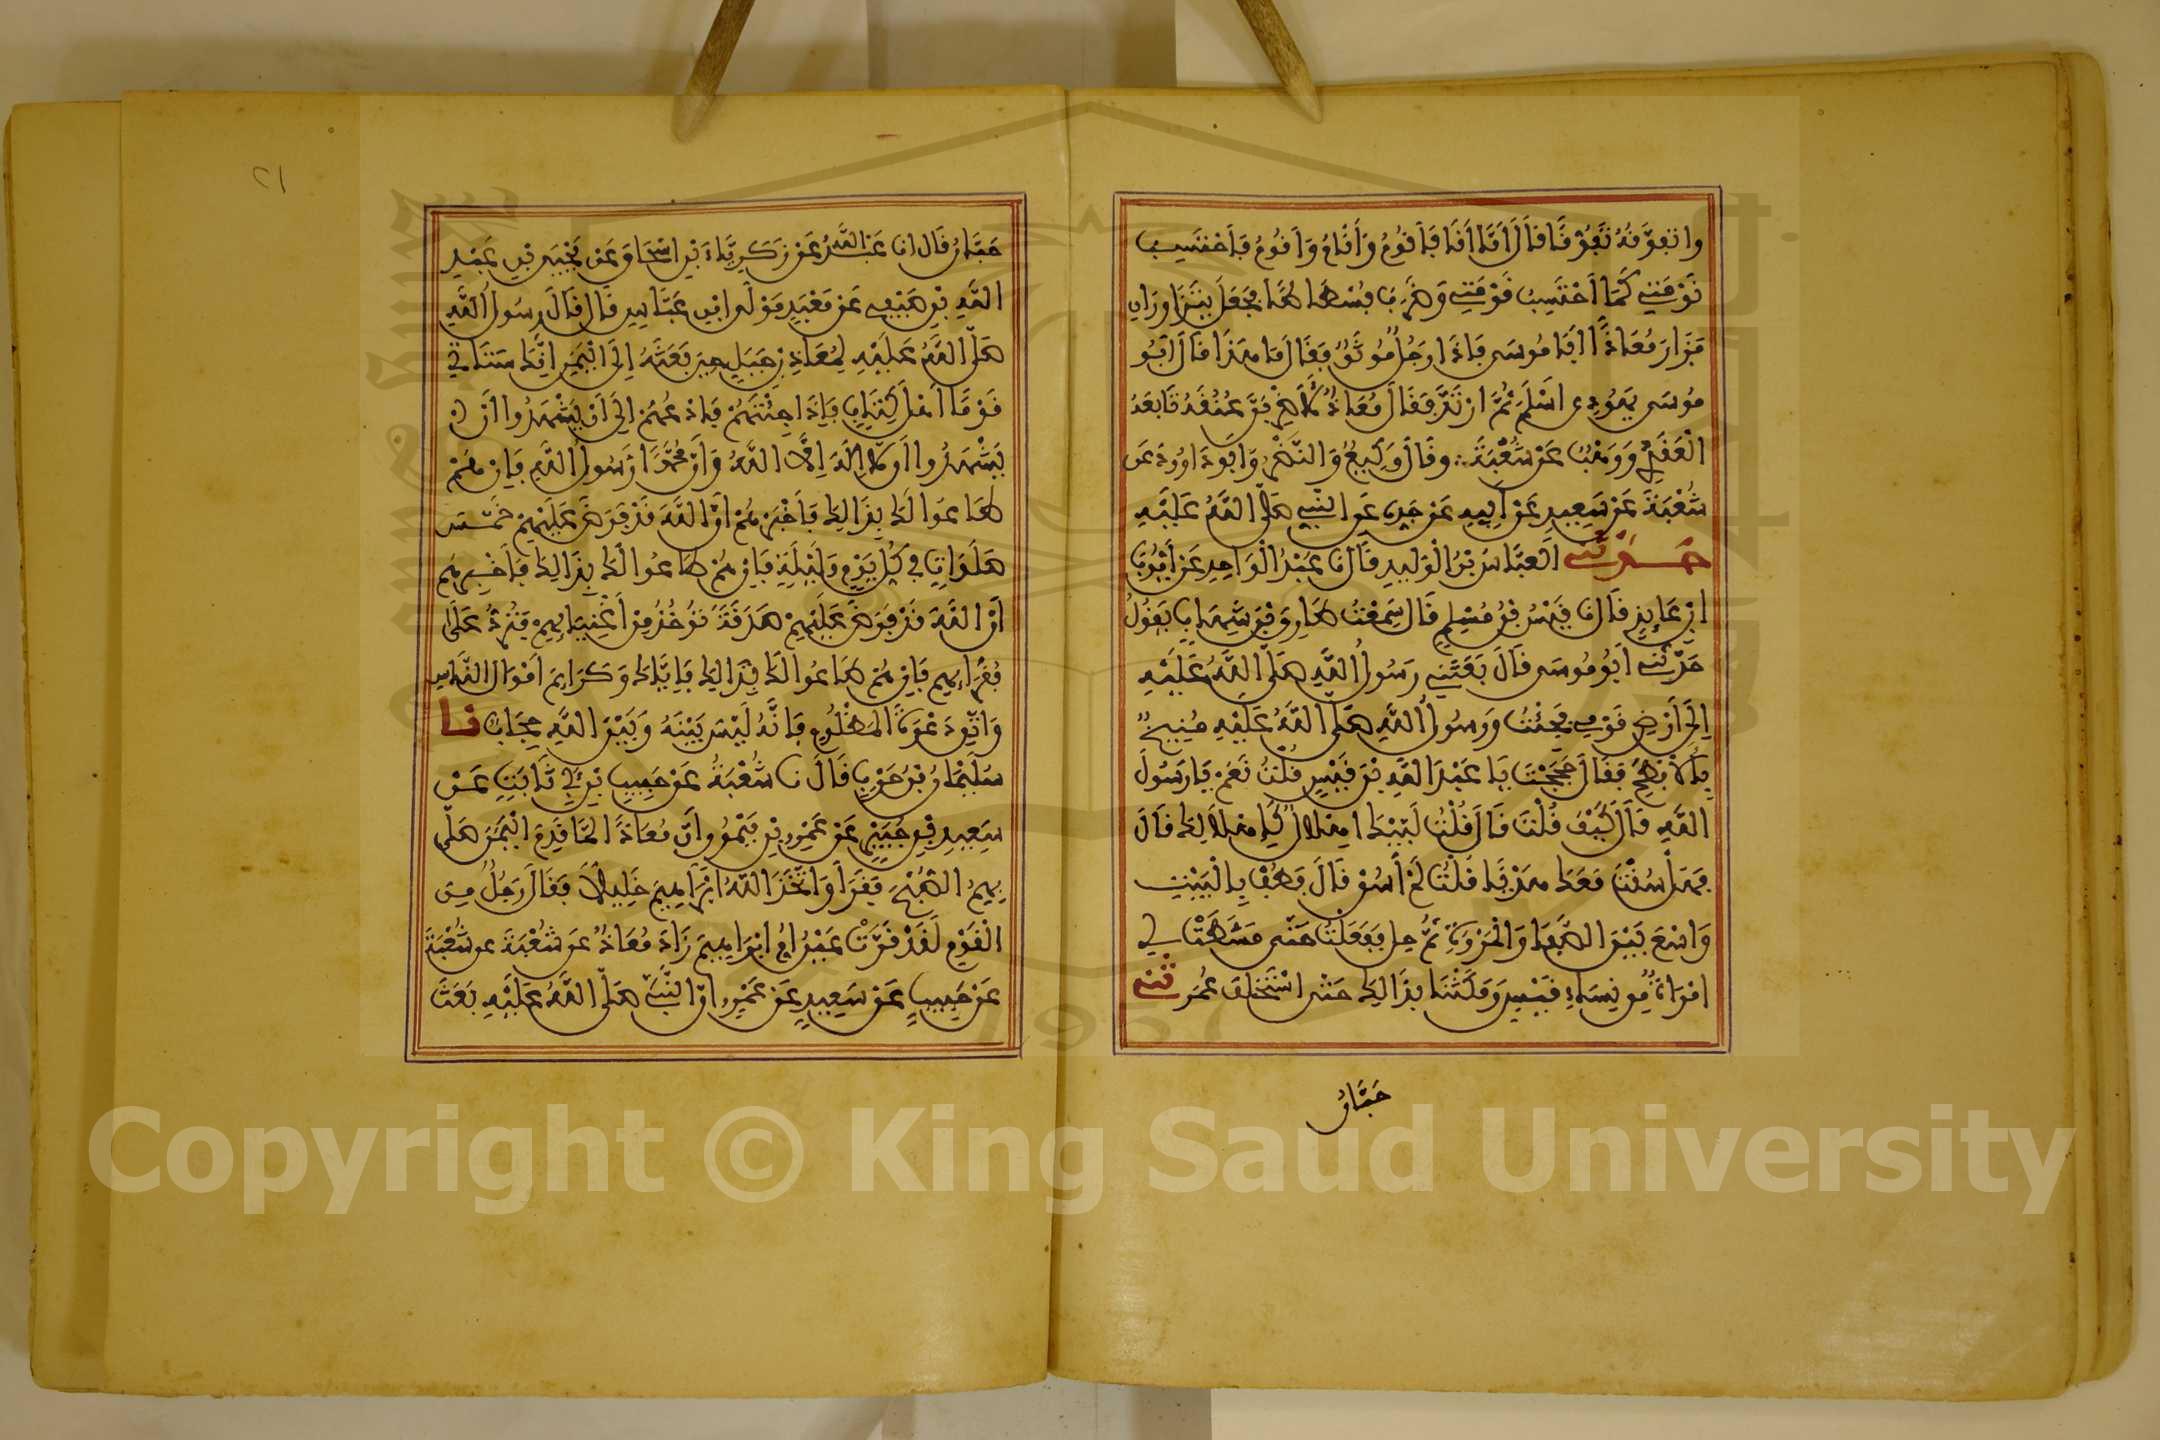 وأتفوقه تفوقا قال أما أنا فأقوم وأنام وأقوم فأحتسب
نومتي كما أحتسب قومتي وضرب فسطاطا فجعل يتزاوران
فزار معاذ أبا موسى فإذا رجل موثق فقال ما هذا قال أبو
موسى يهودي أسلم ثم ارتد فقال معاذ لأضربن عنقه تابعه
العقدي ووهب عن شعبة وقال وكيع والنضر وأبو داود عن
شعبة عن سعيد عن أبيه عن جده عن النبي صلى الله عليه
حدثني العباس بن الوليد قال نا عبد الواحد عن أيوب
ابن عايذ قال نا قيس بن مسلم قال سمعت طارق بن شهاب يقول
حدثني أبو موسى قال بعثني رسول الله صلى الله عليه
إلى أرض قومي فجئت ورسول الله صلى الله عليه منيخ
بالأبطح فقال أحججت يا عبد الله بن قيس قلت نعم يا رسول
الله قال كيف قلت قال قلت لبيك إهلال كإهلالك قال
فهل سقت معك هديا قلت لم أسق قال فطف بالبيت
واسع بين الصفا والمروة ثم حل ففعلت حتى مشطت لي
امرأة من نساء قيس ومكثنا بذلك حتى استخلف عمر ثني
حبان
٢١
حبان قال انا عبد الله عن زكرياء بن إسحاق عن يحيى بن عبد
الله بن صيفي عن أبي معبد مولى ابن عباس قال قال رسول الله
صلى الله عليه لمعاذ بن جبل حين بعثه إلى اليمن إنك ستاتي
قوما أهل كتاب فإذا جئتهم فادعهم إلى أن يشهدوا أن
يشهدوا أن لا إله إلا الله وأن محمدا رسول الله فإن هم
طاعوا لك بذلك فأخبرهم أن الله قد فرض عليهم خمس
صلوات في كل يوم وليلة فإن هم طاعوا لك بذلك فأخبرهم
أن الله قد فرض عليهم صدقة توخذ من أغنيايهم فترد على
فقرايهم فإن هم طاعوا لك بذلك فإياك وكرايم أموال الناس
واتق دعوة المظلوم فإنه ليس بينه وبين الله حجاب نا
سليمان بن حرب قال نا شعبة عن حبيب بن أبي ثابت عن
سعيد بن جبير عن عمرو بن ميمون أن معاذا لما قدم اليمن صلى
بهم الصبح فقرأ واتخذ الله إبراهيم خليلا فقال رجل من
القوم لقد قرت عين أم إبراهيم زاد معاذ عن شعبة عن شعبة
عن حبيب عن سعيد عن عمرو أن النبي صلى الله عليه بعث
Copyright © King Saud University
1957